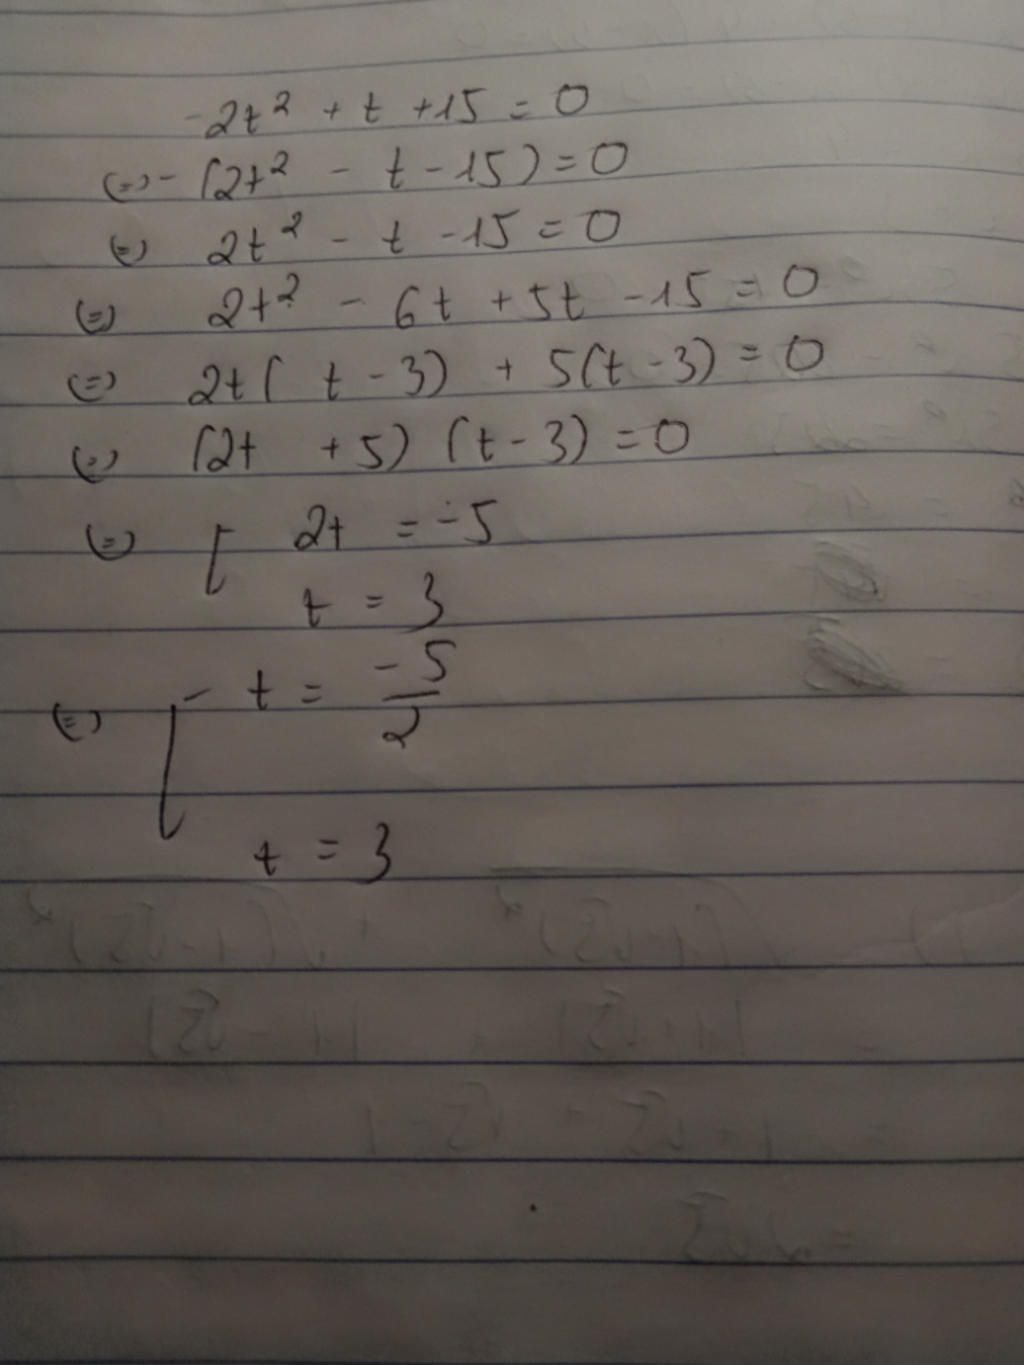 -2t² + t + 15 = 0
(=) - (2t² - t - 15) = 0
(=) 2t² - t - 15 = 0
(=) 2t² - 6t + 5t - 15 = 0
(=) 2t( t - 3) + 5(t - 3) = 0
(=) (2t + 5) (t - 3) = 0
(=) [ 2t = -5
t = 3
(=) [ t = -5/2
t = 3